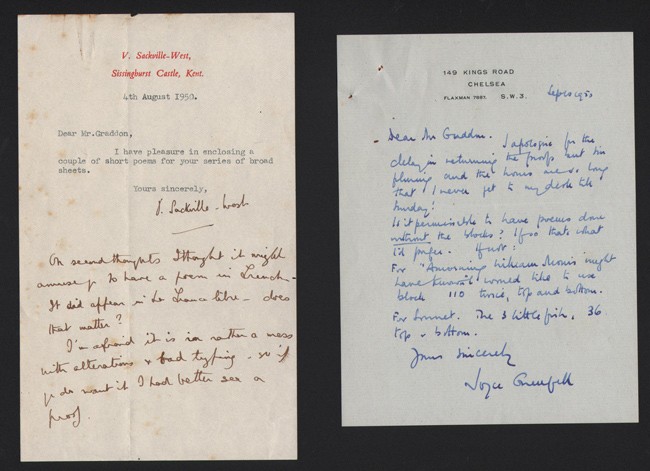 V. Sackville-West,
Sissinghurst Castle, Kent.
4th August 1950.
Dear Mr.Graddon,
I have pleasure in enclosing a
couple of short poems for your series of broad
sheets.
Yours sincerely,
V. Sackville-West
On second thoughts I thought it might
amuse yr to have a poem in French.
It did appear in La France Libre – does
that matter?
I'm afraid it is in rather a mess
with alterations & bad typing – so if
yr do want it I had better see a
proof.
149 KINGS ROAD
CHELSEA
FLAXMAN 7697. S.W.3.
Sept 20 1950
Dear Mr Graddon. I apologise for the
delay in returning the proofs but I'm
filming and the hours are so long
that I never get to my desk till
Sunday!
Is it permissible to have poems done
without the blocks? If so that's what
I'd prefer. If not:
For "Amusing William Morris might
have would like to use
block 110 twice, top and bottom.
For Sonnet. The 3 little fish, 36
top & bottom.
Yours sincerely
Joyce Grenfell